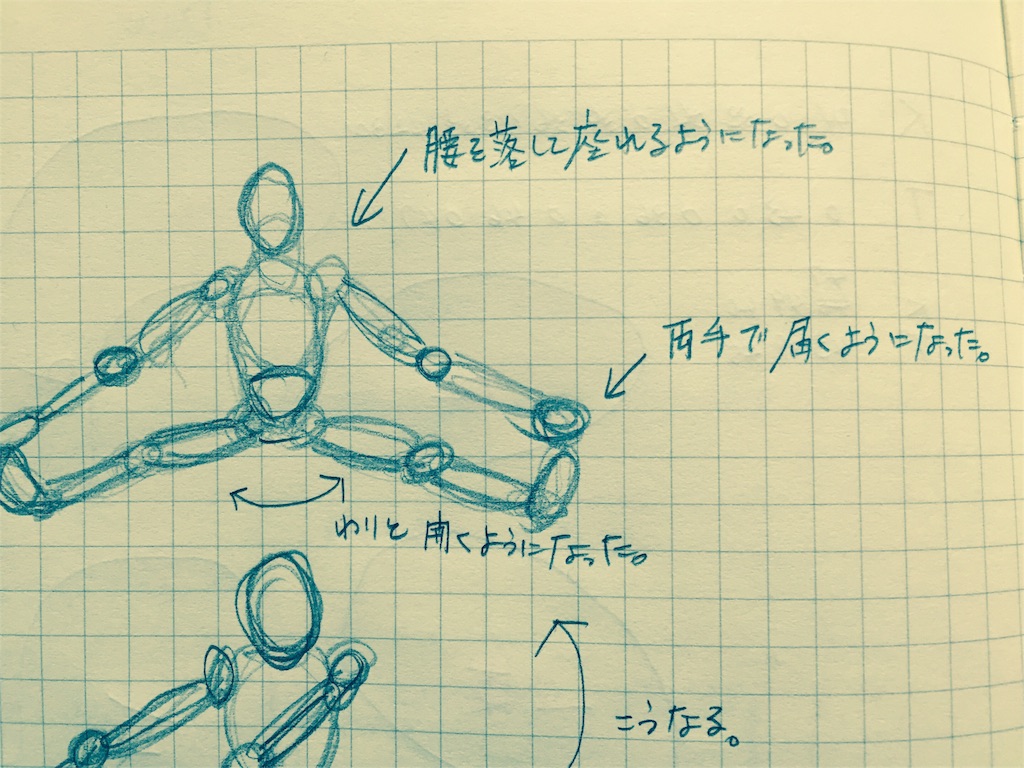 腰を落して座れるようになった。
両手で届くようになった。
わりと開くようになった。
こうなる。